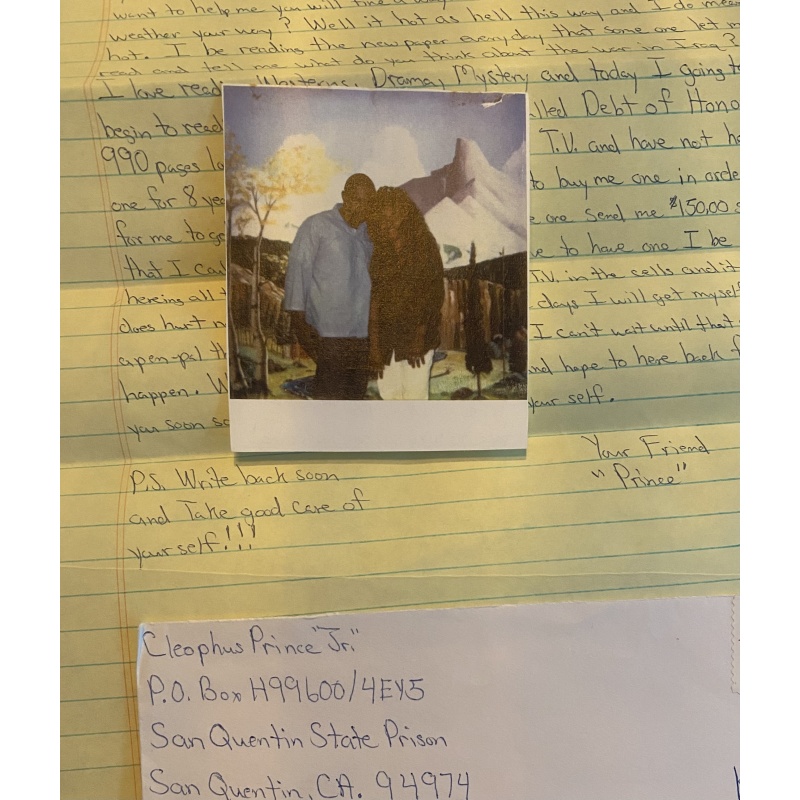 want to help me you will
weather your way? Well it hot as hell this way and I do mea
hot. I be reading the newpaper everyday that some one let m
read and tell me what do you think about the war in Iraq?
I love read Westerns, Drama, Mystery and today I going to
begin to read lled Debt of Hono
990 pages lo T.V. and have not h
one for 8 yea to buy me one in orde
for me to ge e one send me $150.00
that I ca ve to have one I be
hereing all t T.V. in the cells and it
does hurt n days I will get myself
a pen-pal th I can't wait until that
happen. W and hope to here back f
you soon so your self.
Your Friend
"Prince"
P.S. Write back soon
and Take good care of
your self!!!
Cleophus Prince "Jr."
P.O. Box H99600/4EY5
San Quentin State Prison
San Quentin, CA. 94974